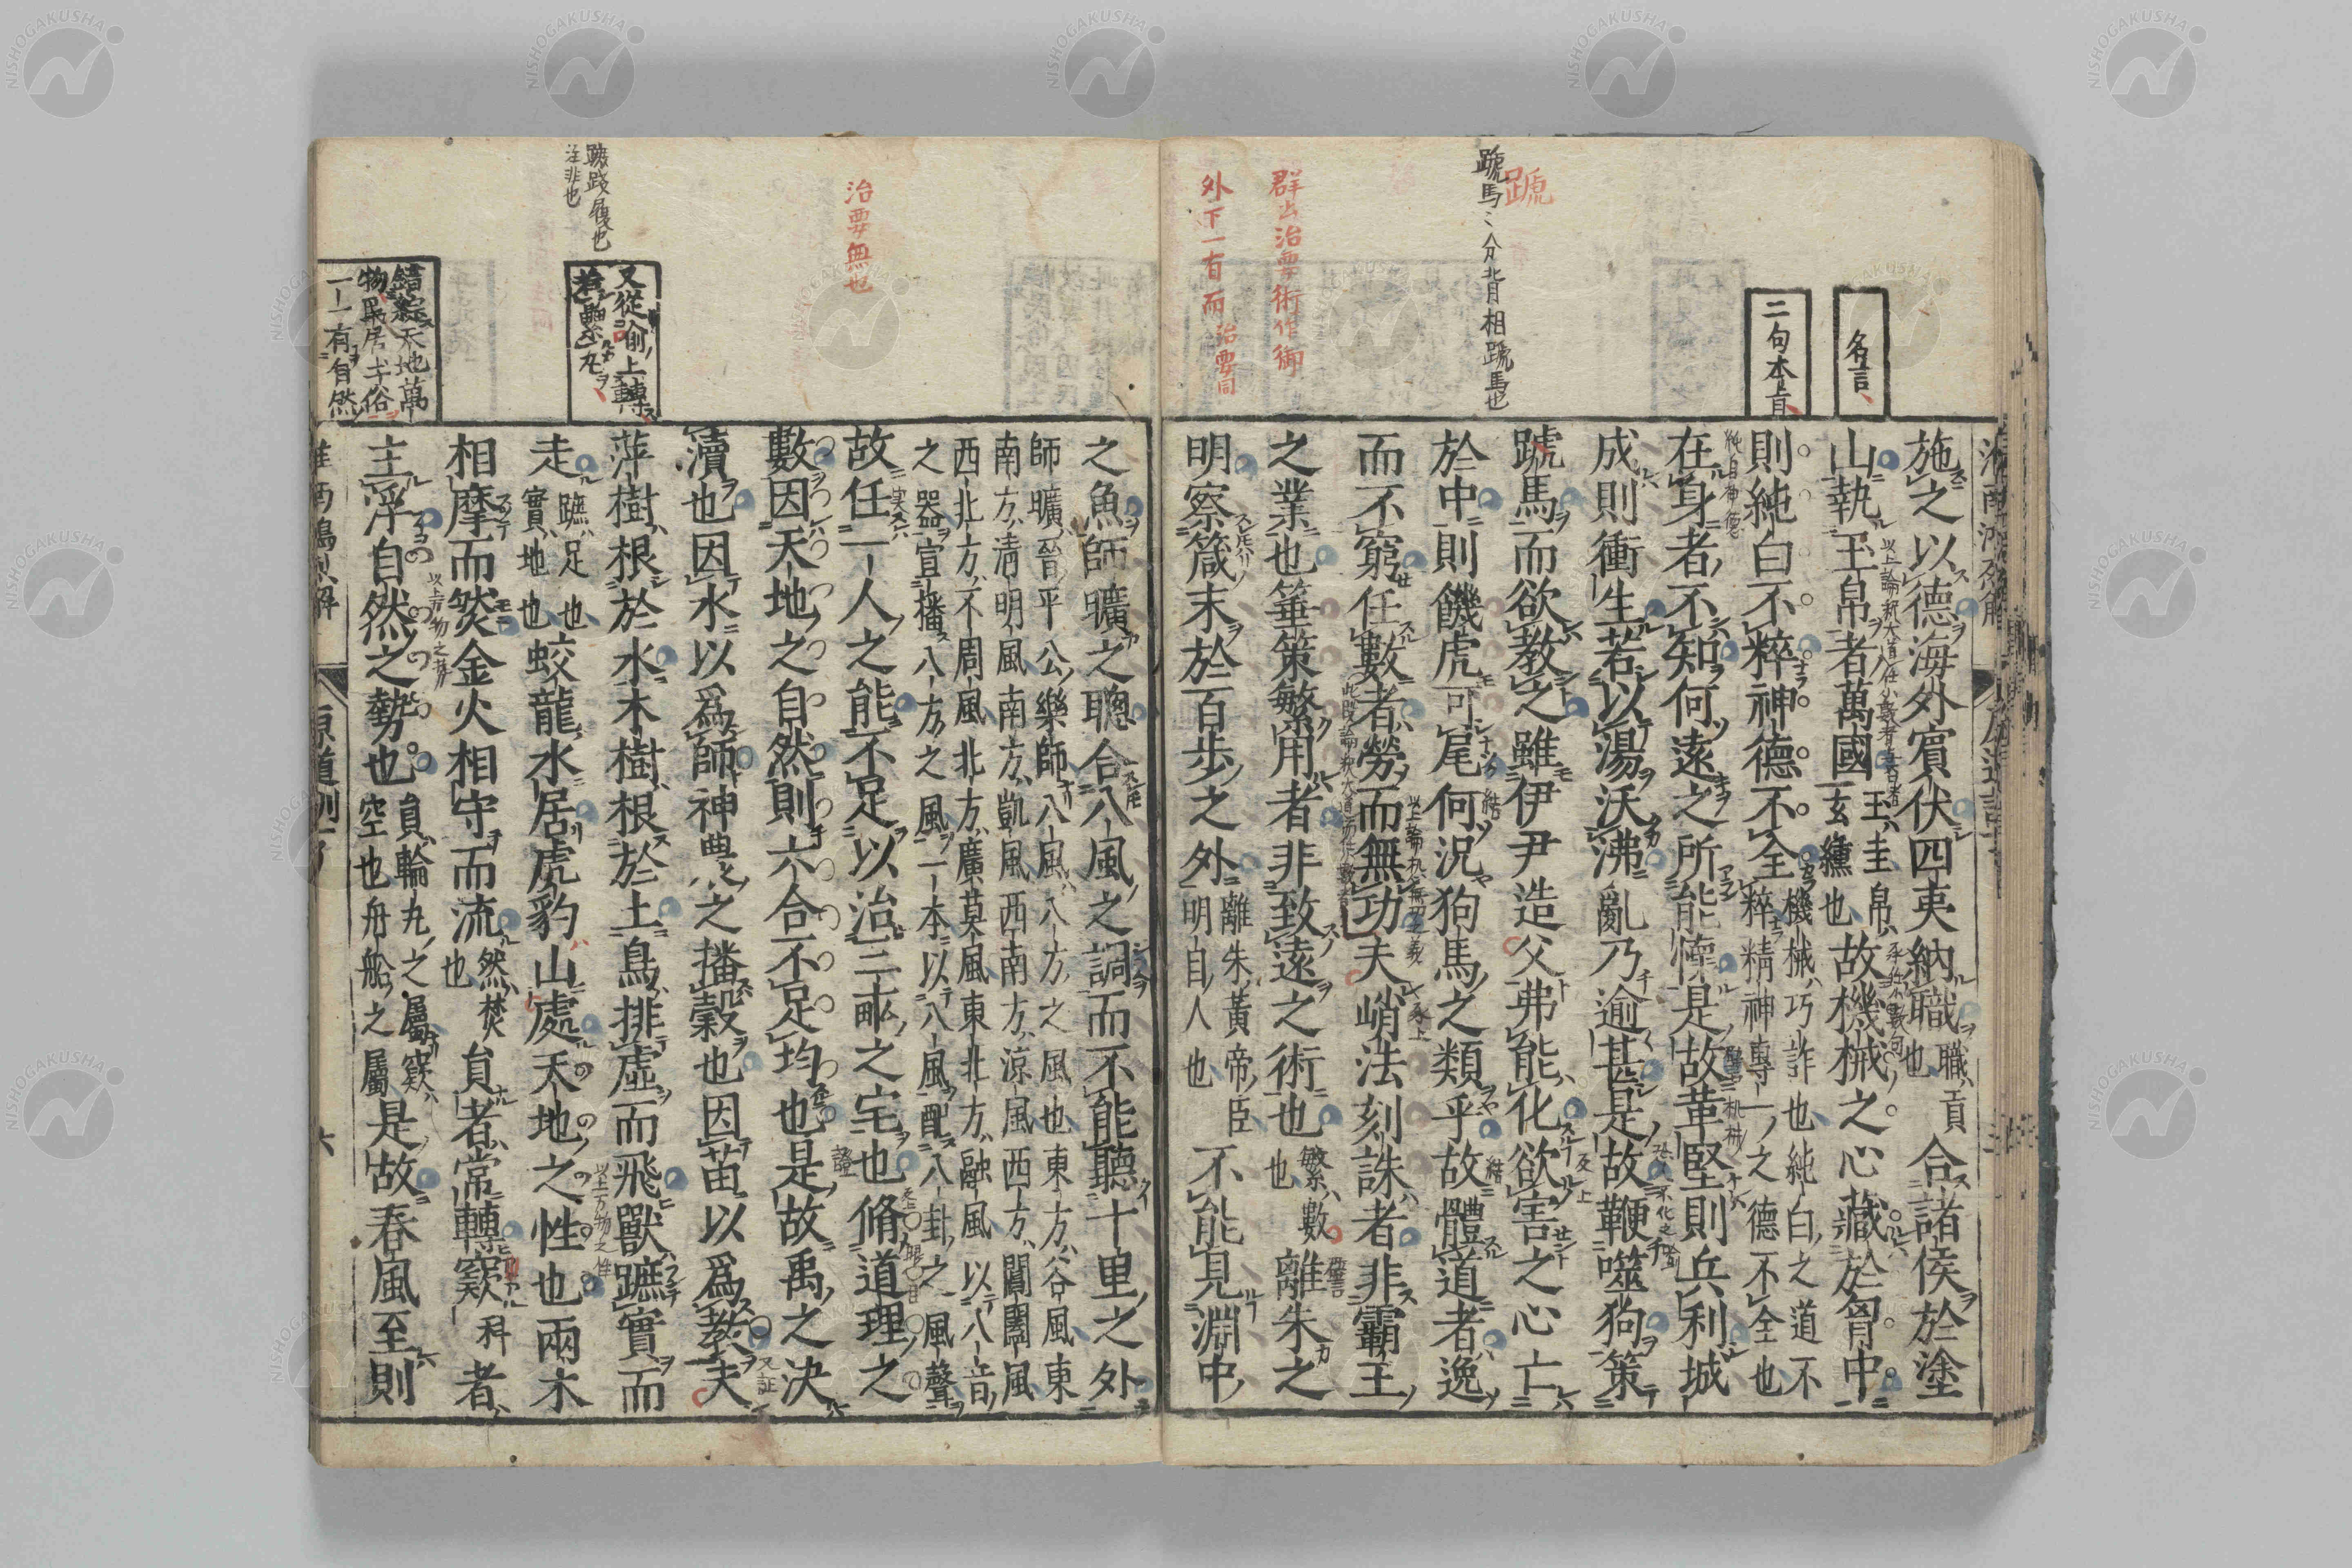 名言
二句本旨
蹏
蹏馬〻分背相蹏馬也
群书治要術作御
外下一有而治要同
施之以德海外賓伏四夷納職職貢也合諸侯於塗
山執玉帛者萬國玉圭帛玄纁也故機械之心藏於胷中
則純白不粹神德不全機械巧詐也純白之道不粹精神專一之德不全也
在身者不知何遠之所能懷是故革堅則兵利城
成則衝生若以湯沃沸亂乃逾甚是故鞭噬狗策
蹏馬而欲教之雖伊尹造父弗能化欲害之心亡
於中則饑虎可尾何況狗馬之類乎故體道者逸
而不窮任數者勞而無功夫峭法刻誅者非霸王
之業也箠策繁用者非致遠之術也繁數也離朱之
明察箴末於百步之外離朱黃帝臣明目人也不能見淵中
治要無也
又從喻上轉
蹠踐履也
注非也
錯綜天地萬
物民居土俗
一一有自然
之魚師曠之聰合八風之調而不能聽十里之外
師曠晉平公樂師八風八方之風也東方谷風東
南方清明風南方凱風西南方涼風西方閶闔風
西北方不周風北方廣莫風東北方融風以八音
之器宣播八方之風一本以八風配八卦之風聲
故任一人之能不足以治三畝之宅也脩道理之
數因天地之自然則六合不足均也是故禹之決
瀆也因水以爲師神農之播穀也因苗以爲教夫
萍樹根於水木樹根於土鳥排虛而飛獸蹠實而
走蹠足也實地也蛟龍水居虎豹山處天地之性也兩木
相摩而然金火相守而流然焚也員者常轉窾者
主浮自然之勢也員輪丸之屬窾空也舟船之屬是故春風至則
原道訓
六